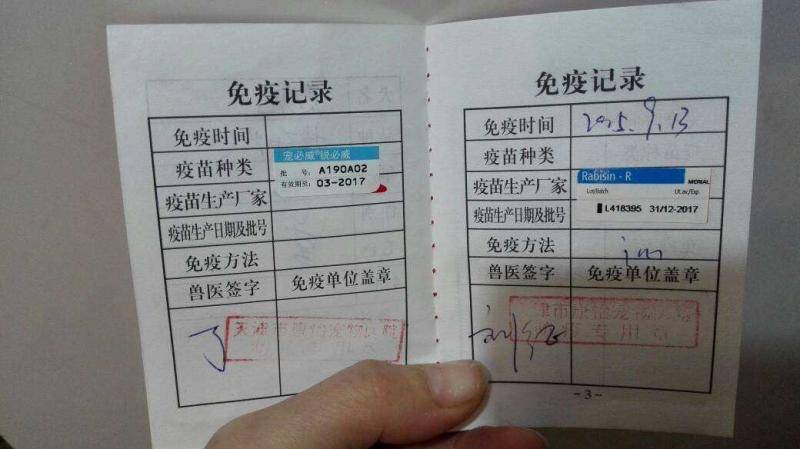 免疫记录
免疫时间
疫苗种类
宠必威®锐必威
批 号: A190A02
有效期至: 03-2017
疫苗生产厂家
疫苗生产日期及批号
免疫方法
兽医签字 免疫单位盖章
免疫记录
免疫时间 2015.9.13
疫苗种类
疫苗生产厂家
Rabisin - R MERIAL
Lot/Batch Ut.av./Exp.
L418395 31/12-2017
疫苗生产日期及批号
免疫方法 im
兽医签字 免疫单位盖章
- 3 -